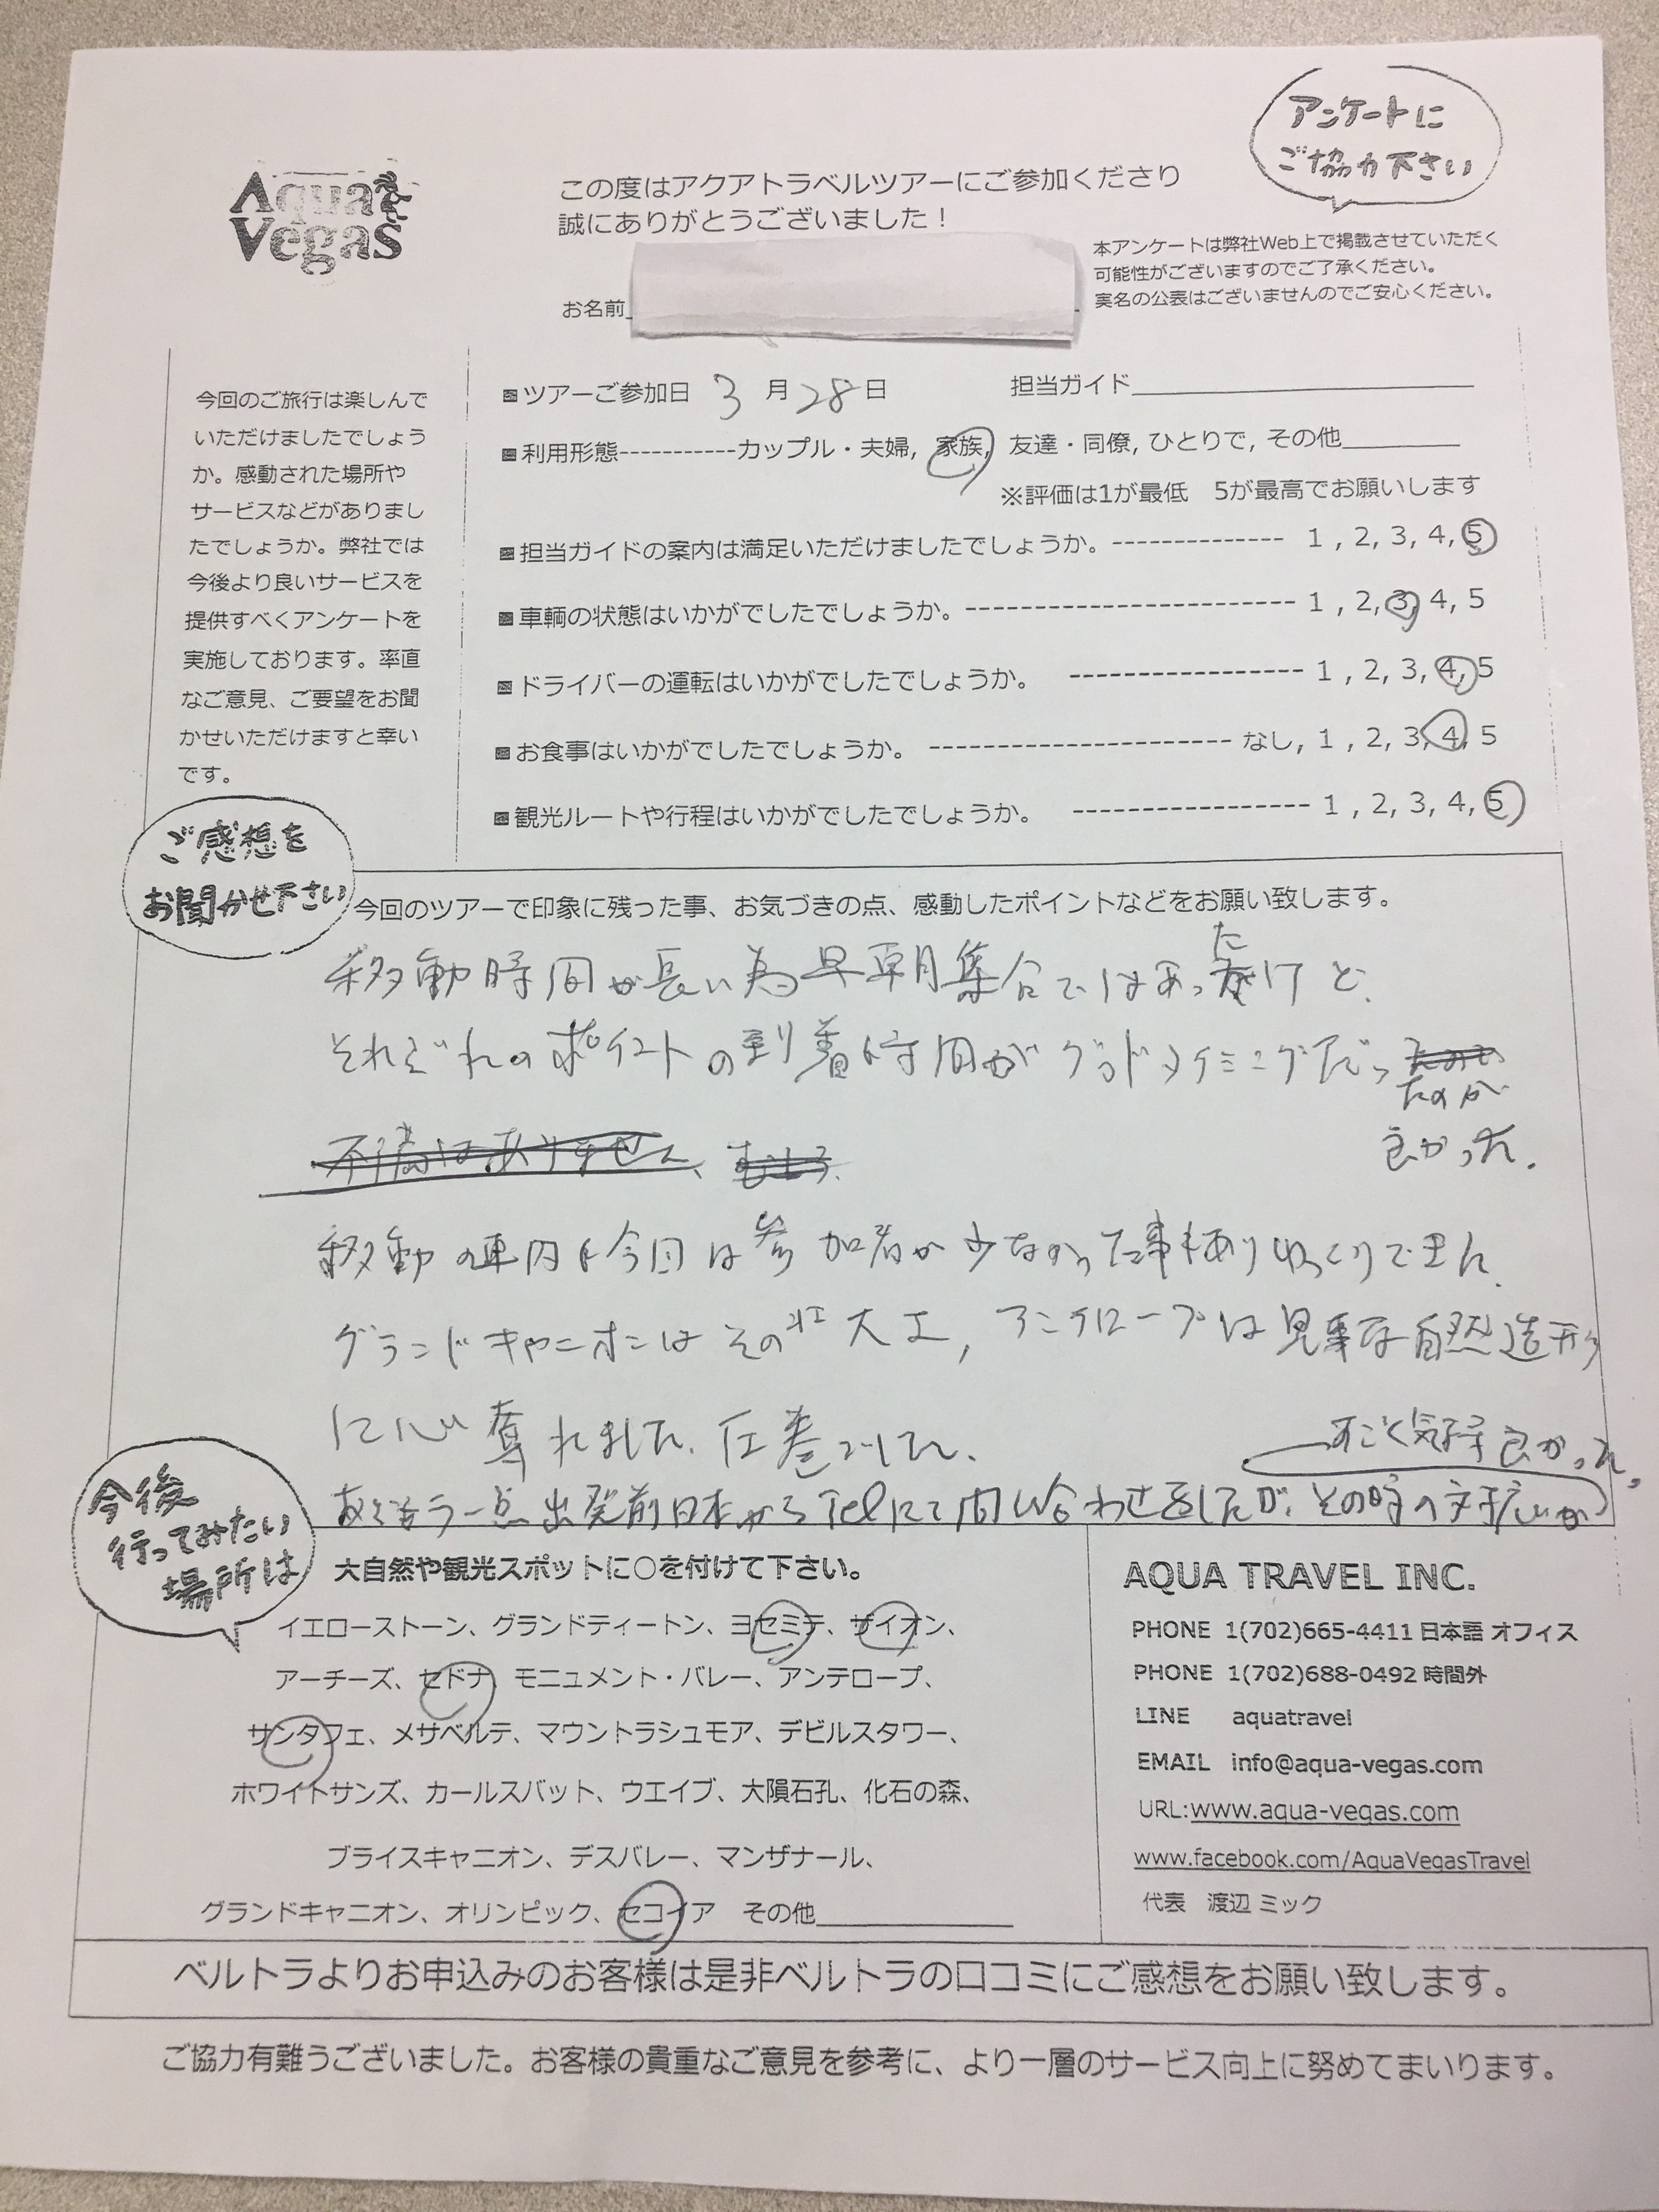 アンケートに
ご協力下さい
Aqua
Vegas
この度はアクアトラベルツアーにご参加くださり
誠にありがとうございました！
本アンケートは弊社Web上で掲載させていただく
可能性がございますのでご了承ください。
実名の公表はございませんのでご安心ください。
お名前
今回のご旅行は楽しんで
いただけましたでしょう
か。感動された場所や
サービスなどがありまし
たでしょうか。弊社では
今後より良いサービスを
提供すべくアンケートを
実施しております。率直
なご意見、ご要望をお聞
かせいただけますと幸い
です。
■ツアーご参加日 3 月 28 日 担当ガイド
■利用形態-----------カップル・夫婦, 家族, 友達・同僚, ひとりで, その他
※評価は1が最低 5が最高でお願いします
■担当ガイドの案内は満足いただけましたでしょうか。-------------- 1 , 2, 3, 4, 5
■車輌の状態はいかがでしたでしょうか。--------------------------- 1 , 2, 3, 4, 5
■ドライバーの運転はいかがでしたでしょうか。 ----------------- 1 , 2, 3, 4, 5
■お食事はいかがでしたでしょうか。 ---------------------- なし, 1 , 2, 3, 4, 5
■観光ルートや行程はいかがでしたでしょうか。 ----------------- 1 , 2, 3, 4, 5
ご感想を
お聞かせ下さい
今回のツアーで印象に残った事、お気づきの点、感動したポイントなどをお願い致します。
移動時間が長い為早朝集合ではあったけど、
それぞれのポイントの到着時間がグッドタイミングだっ
たのが
良かった。
不満はありません、
移動の車内も今回は参加者が少なかった事もありゆっくりできた。
グランドキャニオンはその壮大さ, アンテロープは見事な自然造形
に心奪われました。圧巻でした。
すごく気持良かった。
もう一点出発前日本からTelにて問い合わせをしたが、その時の対応が
今後
行ってみたい
場所は
大自然や観光スポットに○を付けて下さい。
イエローストーン、グランドティートン、ヨセミテ、ザイオン、
アーチーズ、セドナ、モニュメント・バレー、アンテロープ、
サンタフェ、メサベルテ、マウントラシュモア、デビルスタワー、
ホワイトサンズ、カールスバット、ウエイブ、大隕石孔、化石の森、
ブライスキャニオン、デスバレー、マンザナール、
グランドキャニオン、オリンピック、セコイア その他
AQUA TRAVEL INC.
PHONE 1(702)665-4411 日本語 オフィス
PHONE 1(702)688-0492 時間外
LINE aquatravel
EMAIL info@aqua-vegas.com
URL:www.aqua-vegas.com
www.facebook.com/AquaVegasTravel
代表 渡辺 ミック
ベルトラよりお申込みのお客様は是非ベルトラの口コミにご感想をお願い致します。
ご協力有難うございました。お客様の貴重なご意見を参考に、より一層のサービス向上に努めてまいります。